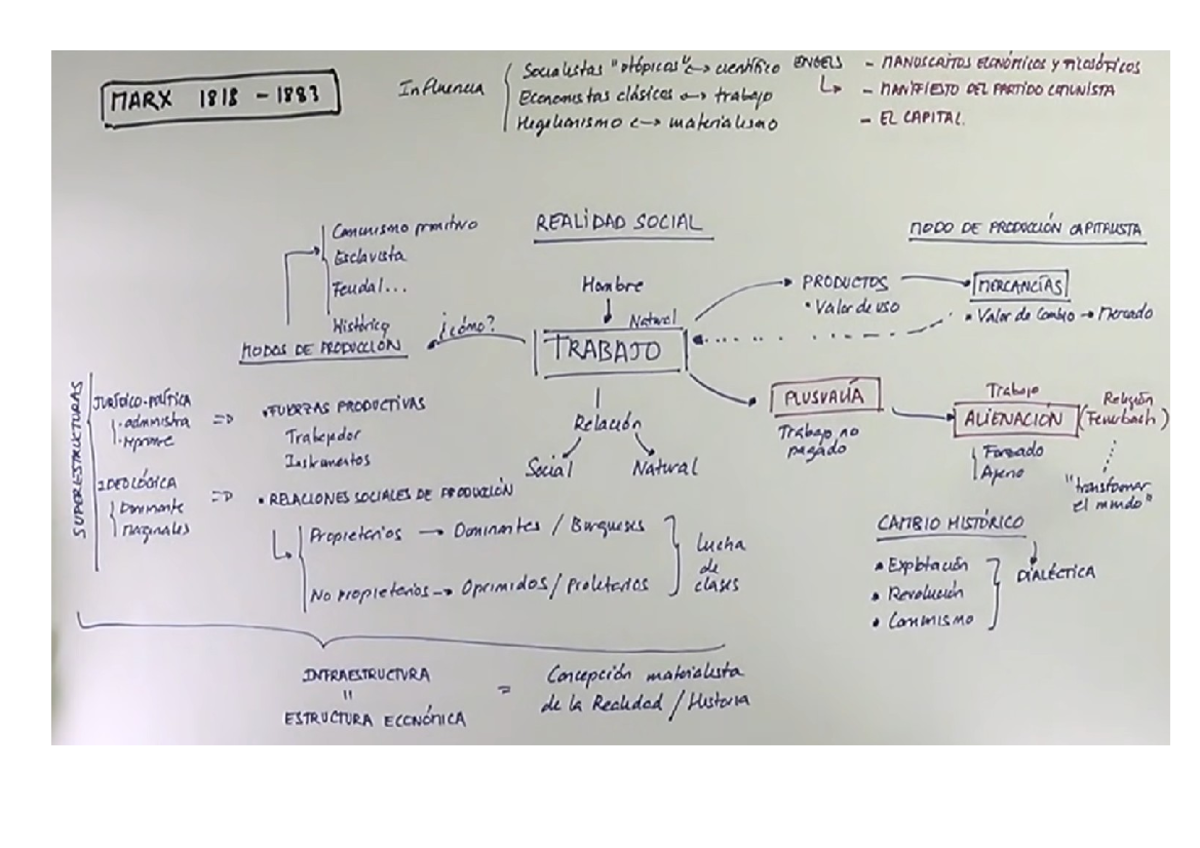 MARX 1818 - 1883
Influencia
Socialistas "utópicos" ↔ científico
Economistas clásicos ↔ trabajo
Hegelianismo ↔ materialismo
ENGELS
- MANUSCRITOS ECONÓMICOS Y FILOSÓFICOS
- MANIFIESTO DEL PARTIDO COMUNISTA
- EL CAPITAL.
REALIDAD SOCIAL
MODO DE PRODUCCIÓN CAPITALISTA
Comunismo primitivo
Esclavista
Feudal...
Histórico
MODOS DE PRODUCCIÓN
¿cómo?
Hombre
Natural
TRABAJO
Relación
Social
Natural
PRODUCTOS
• Valor de uso
MERCANCÍAS
• Valor de Cambio → Mercado
PLUSVALÍA
Trabajo no
pagado
Trabajo
ALIENACION
Forzado
Ajeno
Religión
(Feuerbach)
"transformar
el mundo"
SUPERESTRUCTURAS
JURÍDICO-POLÍTICA
·administra
·reprime
IDEOLÓGICA
Dominante
Marginales
• FUERZAS PRODUCTIVAS
Trabajador
Instrumentos
• RELACIONES SOCIALES DE PRODUCCIÓN
Propietarios → Dominantes / Burgueses
No propietarios → Oprimidos / Proletarios
Lucha
de
clases
CAMBIO HISTÓRICO
• Explotación
• Revolución
• Comunismo
DIALÉCTICA
INFRAESTRUCTURA
=
ESTRUCTURA ECONÓMICA
=
Concepción materialista
de la Realidad / Historia